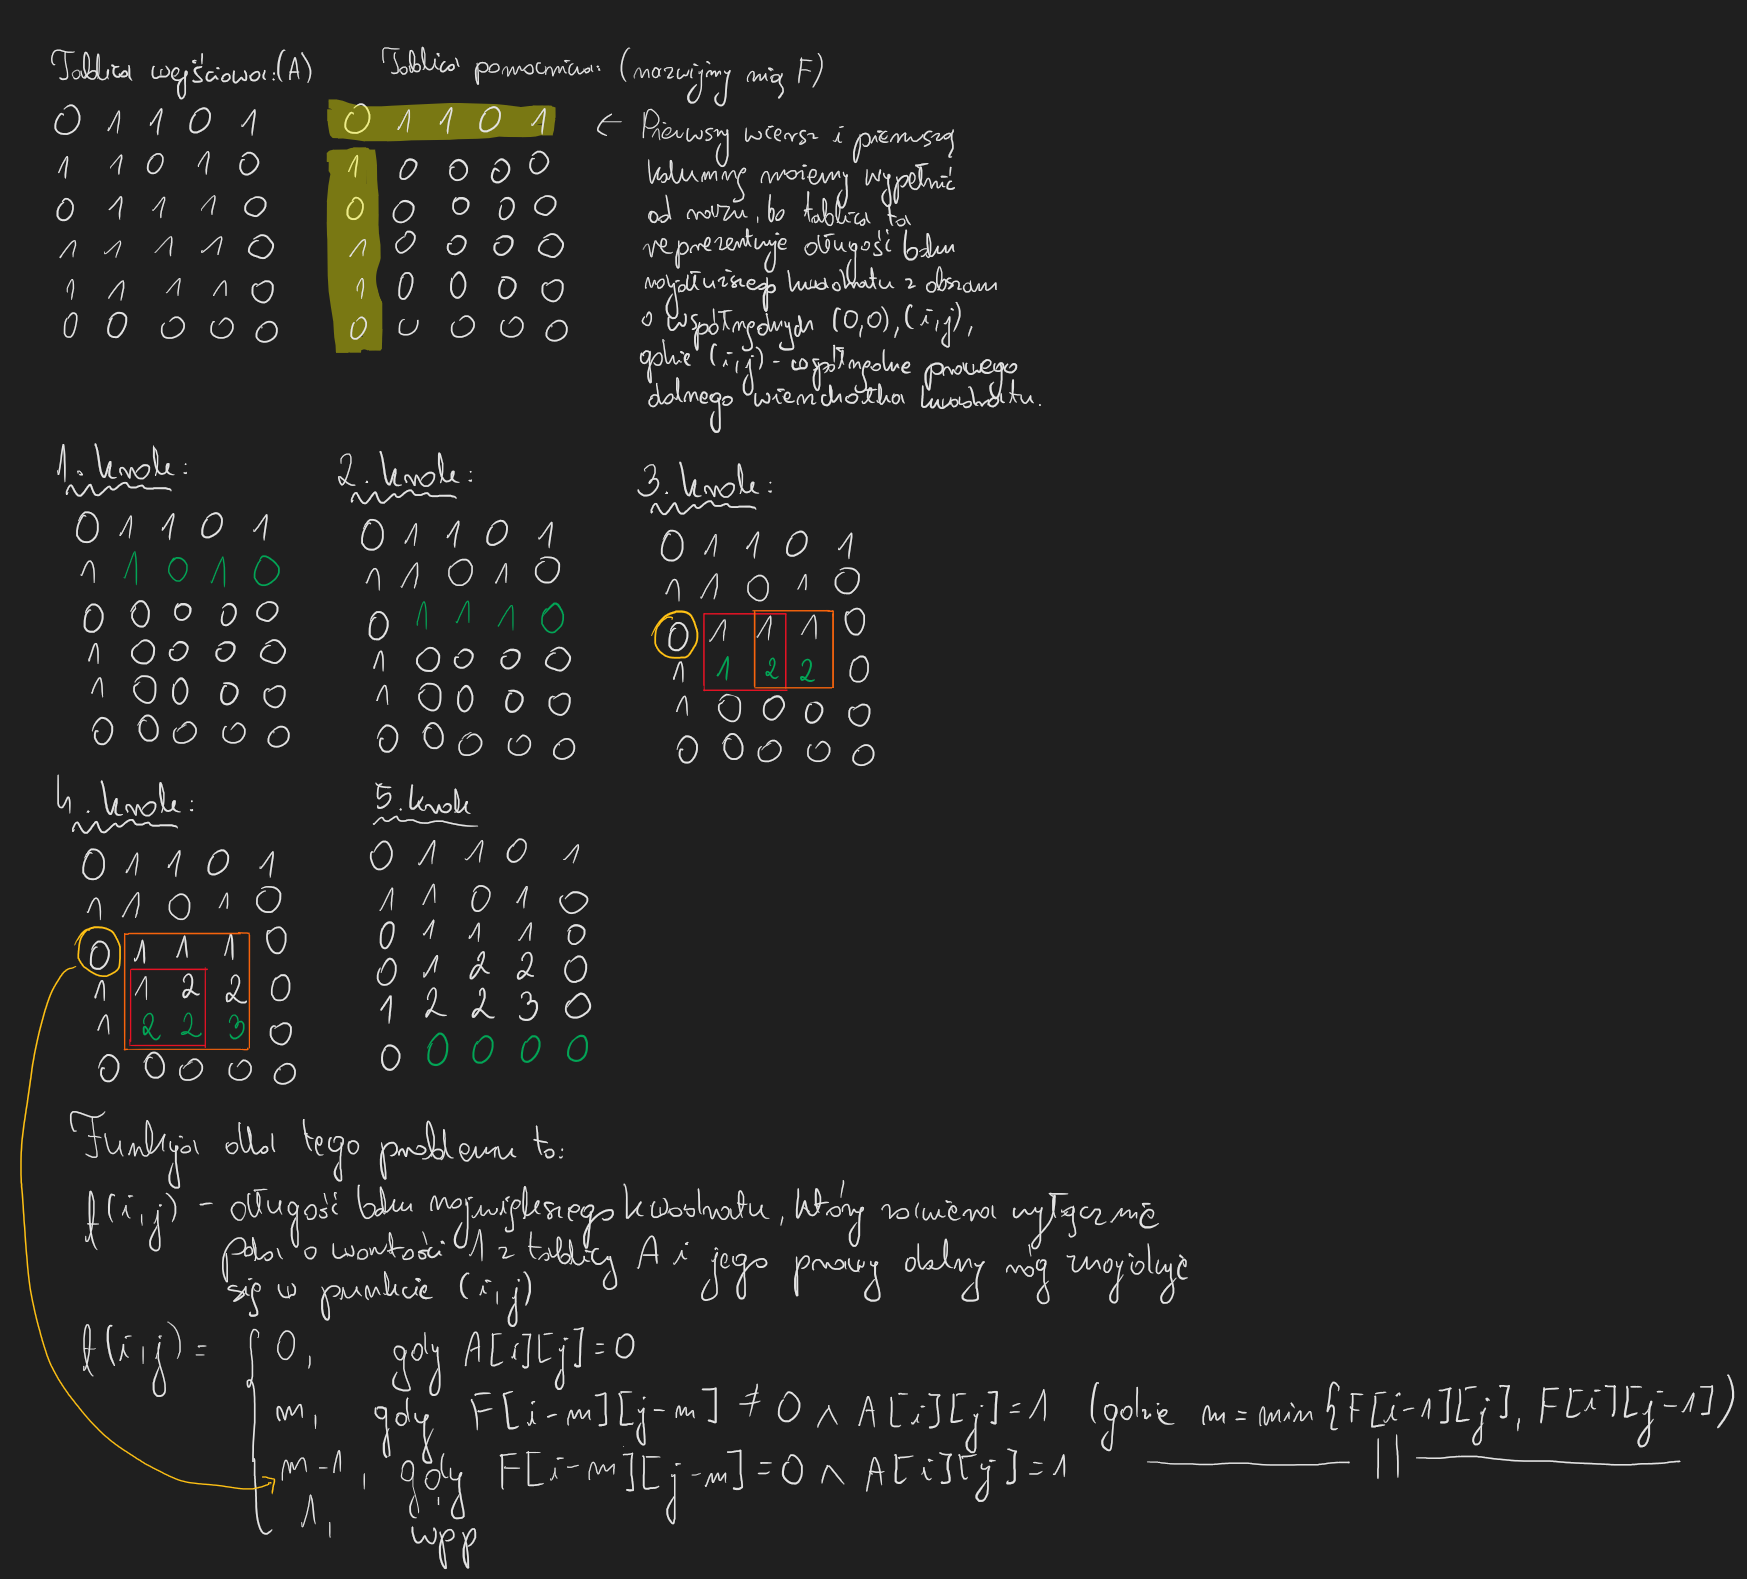 Tablica wejściowa: (A)
0 1 1 0 1
1 1 0 1 0
0 1 1 1 0
1 1 1 1 0
1 1 1 1 0
0 0 0 0 0
Tablica pomocnicza: (nazwijmy nią F)
0 1 1 0 1
1 0 0 0 0
0 0 0 0 0
1 0 0 0 0
1 0 0 0 0
0 0 0 0 0
← Pierwszy wiersz i pierwszą
kolumnę możemy wypełnić
od razu, bo tablica ta
reprezentuje długość boku
najdłuższego kwadratu z obszaru
o współrzędnych (0,0), (i,j),
gdzie (i,j) - współrzędne prawego
dolnego wierzchołka kwadratu.
1. krok:
0 1 1 0 1
1 1 0 1 0
0 0 0 0 0
1 0 0 0 0
1 0 0 0 0
0 0 0 0 0
2. krok:
0 1 1 0 1
1 1 0 1 0
0 1 1 1 0
1 0 0 0 0
1 0 0 0 0
0 0 0 0 0
3. krok:
0 1 1 0 1
1 1 0 1 0
0 1 1 1 0
1 1 2 2 0
1 0 0 0 0
0 0 0 0 0
4. krok:
0 1 1 0 1
1 1 0 1 0
0 1 1 1 0
1 1 2 2 0
1 2 2 3 0
0 0 0 0 0
5. krok
0 1 1 0 1
1 1 0 1 0
0 1 1 1 0
0 1 2 2 0
1 2 2 3 0
0 0 0 0 0
Funkcja dla tego problemu to:
f(i,j) - długość boku największego kwadratu, który zawiera wyłącznie
pola o wartości 1 z tablicy A i jego prawy dolny róg znajduje
się w punkcie (i,j)
f(i,j) = { 0, gdy A[i][j]=0
m, gdy F[i-m][j-m] ≠ 0 ∧ A[i][j]=1 (gdzie m = min{F[i-1][j], F[i][j-1]})
m-1, gdy F[i-m][j-m]=0 ∧ A[i][j]=1
1, wpp